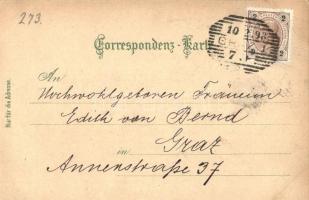 273.
Correspondenz-Karte
An
Hochwohlgeboren Fräulein
Edith von Bernd
in Graz
Annenstraße 37
Nur für die Adresse.
10
7
2 2